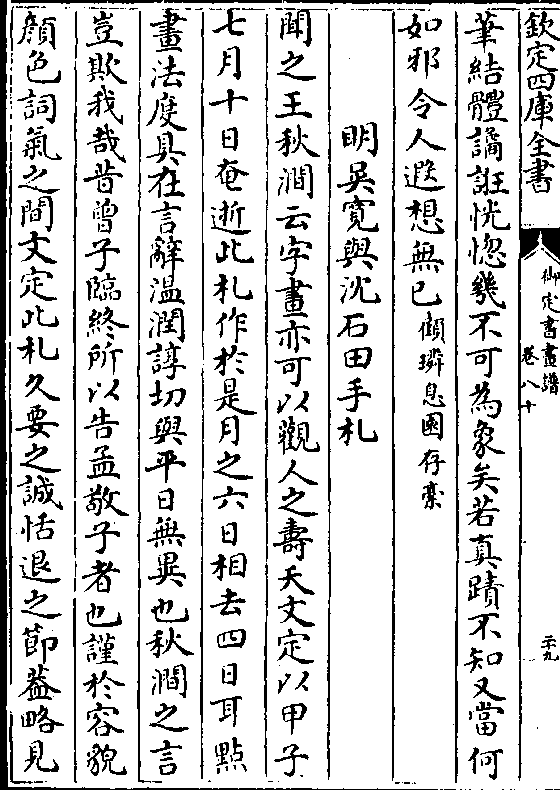 欽定四庫全書
御定書畫譜
卷八十
二十九
華結體譎誑恍惚幾不可為象矣若真蹟不知又當何
如邪令人遐想無已傾璘息園存藁
明吳寛與沈石田手札
聞之王秋澗云字畫亦可以觀人之壽夭文定以甲子
七月十日奄逝此札作於是月之六日相去四日耳點
畫法度具在言辭温潤諄切與平日無異也秋澗之言
豈欺我哉昔曾子臨終所以告孟敬子者也謹於容貌
顔色詞氣之間文定此札久要之誠恬退之節葢略見